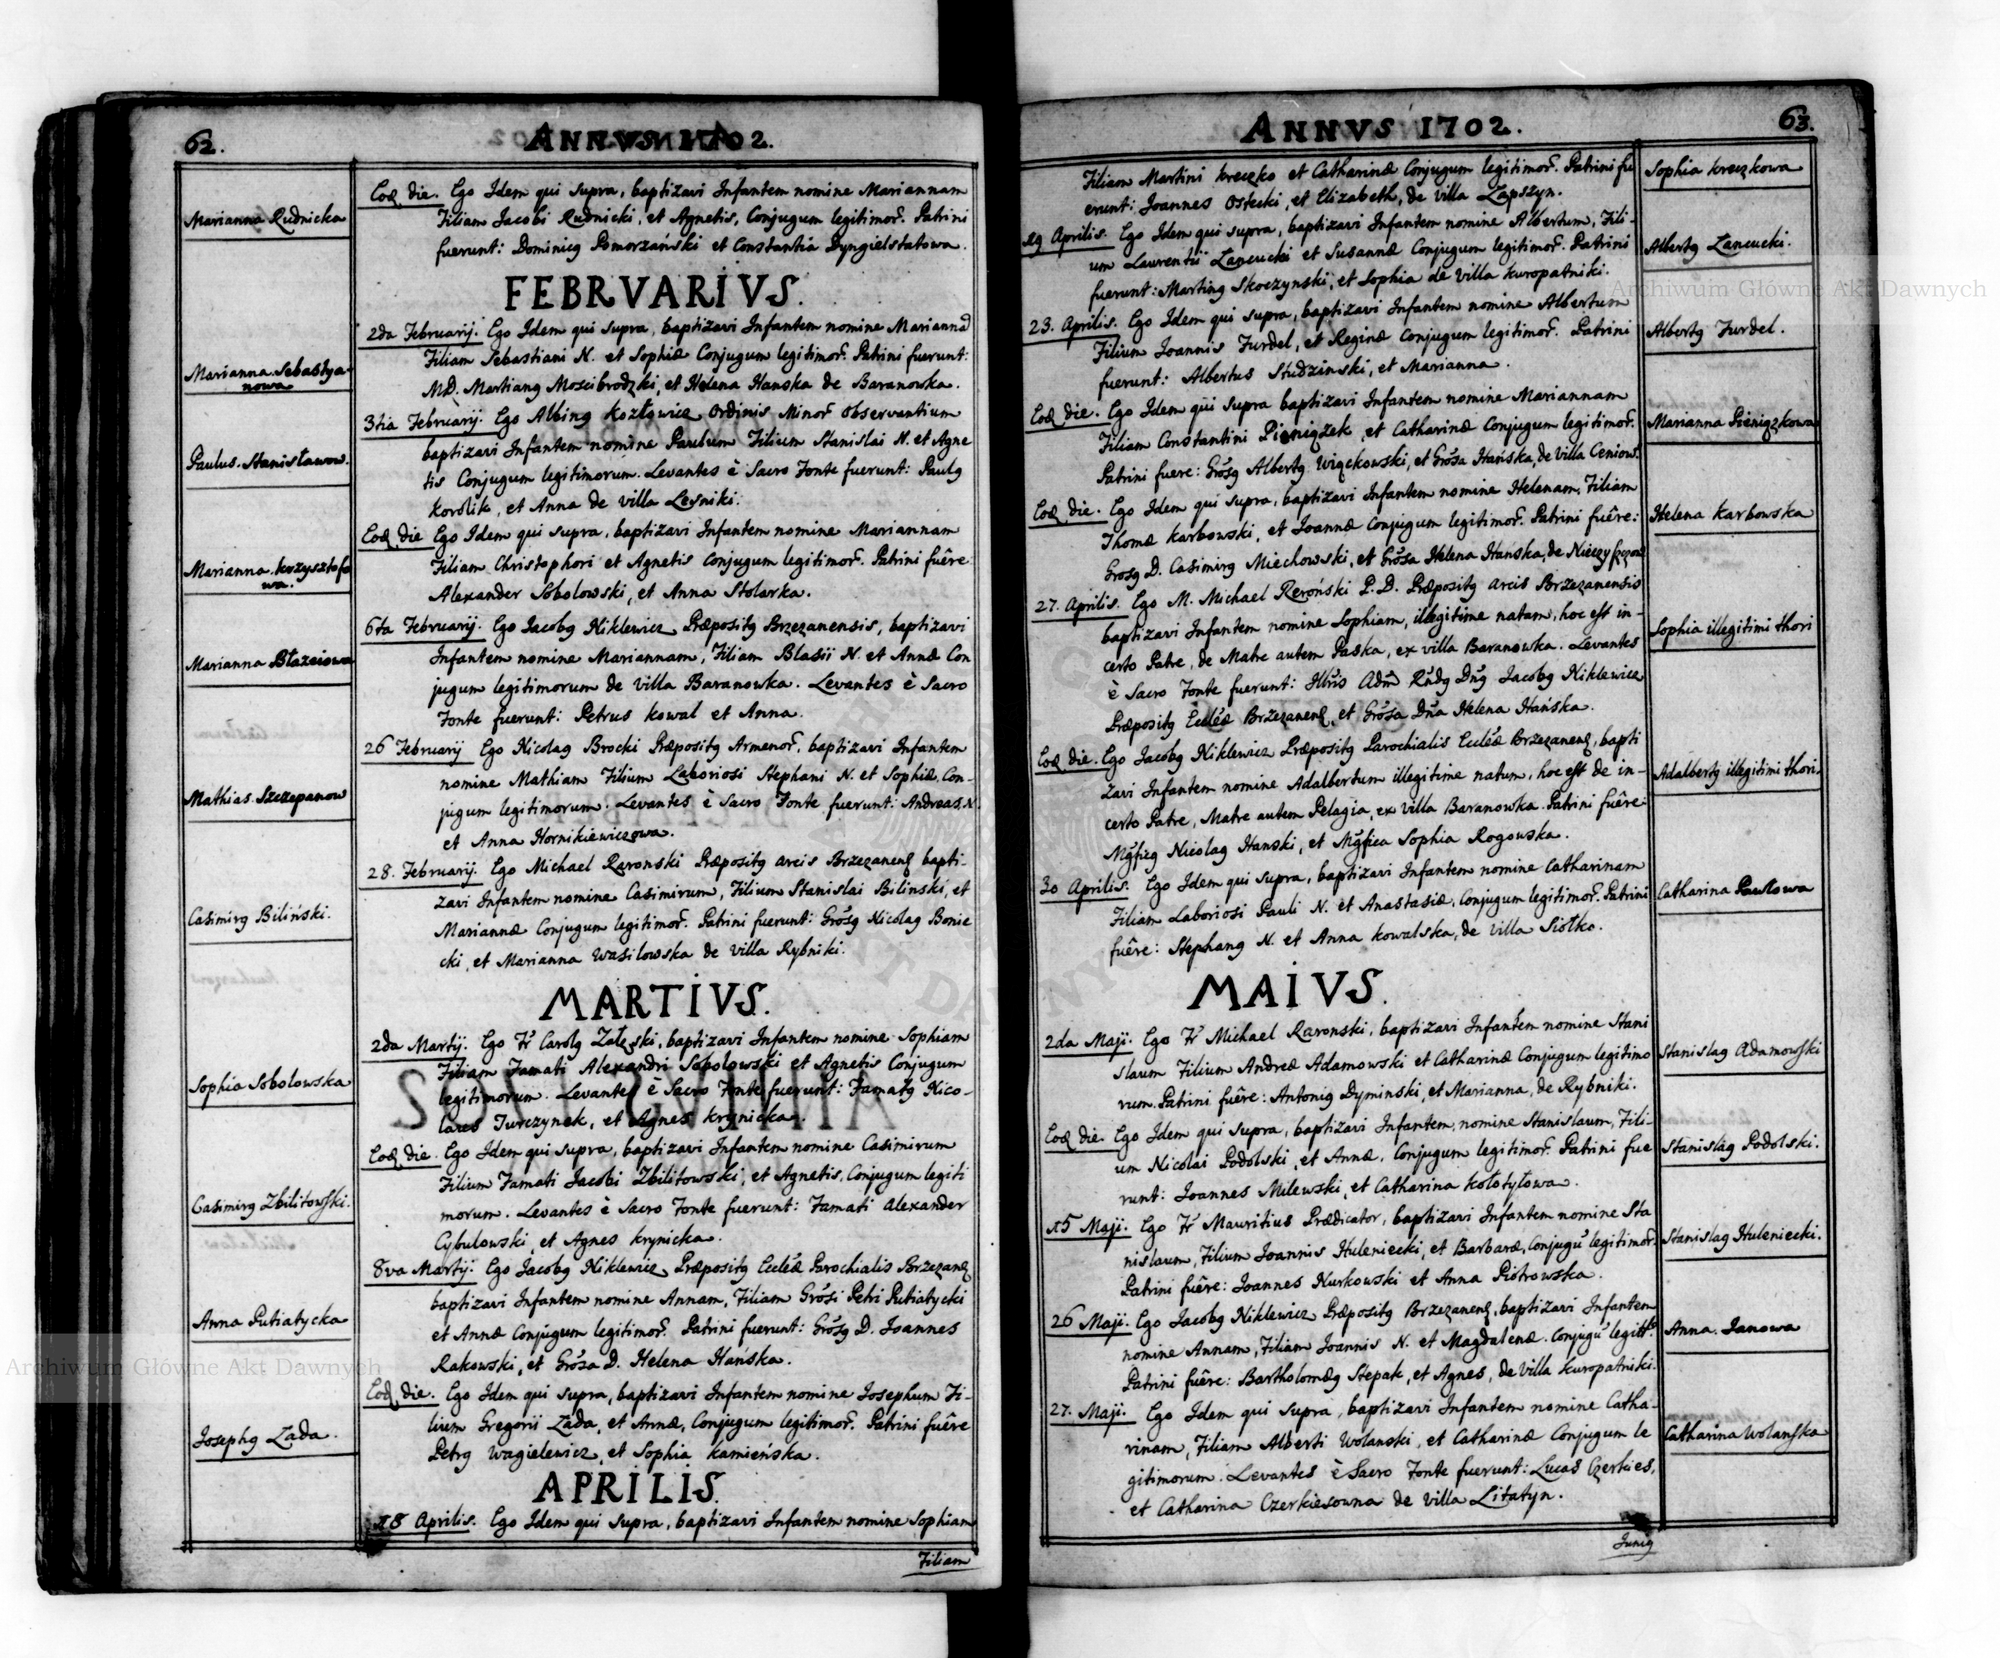 62.
ANNVS 1702.
Marianna Rudnicka
Eoq die. Ego Idem qui supra, baptizavi Infantem nomine Mariannam
Filiam Jacobi Rudnicki, et Agnetis, Conjugum legitimor. Patrini
fuerunt: Dominicq Pomorzański et Constantia Dyngielstatowa.
FEBRVARIVS.
Marianna Sebastya-
nowa
2da Februarij. Ego Idem qui supra, baptizavi Infantem nomine Marianna
Filiam Sebastiani N. et Sophiæ Conjugum legitimor. Patrini fuerunt:
MD. Martianq Moscibrodzki, et Helena Hanska de Baranowka.
Paulus Stanisławow.
3tia Februarij. Ego Albinq Kozłowicz Ordinis Minor Observantium
baptizavi Infantem nomine Paulum Filium Stanislai N. et Agne
tis Conjugum legitimorum. Levantes è Sacro Fonte fuerunt: Paulq
Korolik, et Anna de villa Lesniki.
Marianna Krzysztofo
wa.
Eoq die Ego Idem qui supra, baptizavi Infantem nomine Mariannam
Filiam Christophori et Agnetis Conjugum legitimor. Patrini fuêre
Alexander Sobolowski, et Anna Stolarka.
Marianna Błazeiowa
6ta Februarij. Ego Jacobq Niklewicz Præpositq Brzezanensis, baptizavi
Infantem nomine Mariannam, Filiam Blasii N. et Annæ Con
jugum legitimorum de villa Baranowka. Levantes è Sacro
Fonte fuerunt: Petrus Kowal et Anna.
Mathias Szczepanow
26 Februarij Ego Nicolaq Brocki Præpositq Armenor, baptizavi Infantem
nomine Mathiam Filium Laboriosi Stephani N. et Sophiæ, Con-
jugum legitimorum. Levantes è Sacro Fonte fuerunt: Andreas N.
et Anna Hornikiewiczowa.
Casimirq Biliński.
28. Februarij. Ego Michael Raronski Præpositq Arcis Brzezanenq bapti-
zavi Infantem nomine Casimirum, Filium Stanislai Bilinski, et
Mariannæ Conjugum legitimor. Patrini fuerunt: Grosq Nicolaq Bonie
cki, et Marianna Wasilowska de villa Rybniki.
MARTIVS.
Sophia Sobolowska
2da Martij. Ego Fr Carolq Załęski, baptizavi Infantem nomine Sophiam
Filiam Famati Alexandri Sobolowski et Agnetis Conjugum
legitimorum. Levantes è Sacro Fonte fuerunt: Famatq Nico-
laus Turczynek, et Agnes Krynicka.
Casimirq Zbilitowski.
Eoq die. Ego Idem qui supra, baptizavi Infantem nomine Casimirum
Filium Famati Jacobi Zbilitowski, et Agnetis, Conjugum legiti
morum. Levantes è Sacro Fonte fuerunt: Famati Alexander
Cybulowski, et Agnes Krynicka.
Anna Putiatycka
8va Martij. Ego Jacobq Niklewicz Præpositq Eccléæ Parochialis Brzezanq
baptizavi Infantem nomine Annam, Filiam Grosi Petri Putiatycki
et Annæ Conjugum legitimor. Patrini fuerunt: Grosq D. Joannes
Rakowski, et Grosa D. Helena Hańska.
Josephq Zada.
Eoq die. Ego Idem qui supra, baptizavi Infantem nomine Josephum Fi-
lium Gregorii Zada, et Annæ, Conjugum legitimor. Patrini fuêre
Petrq Wagielewicz, et Sophia Kamieńska.
APRILIS.
18 Aprilis. Ego Idem qui supra, baptizavi Infantem nomine Sophiam
Filiam
ANNVS 1702.
63.
Filiam Martini Kreczko et Catharinæ Conjugum legitimor. Patrini fu
erunt: Joannes Ostecki, et Elizabeth, de villa Zapszyn.
Sophia Kreczkowa
19 Aprilis. Ego Idem qui supra, baptizavi Infantem nomine Albertum, Fili-
um Laurentii Lancucki et Susannæ Conjugum legitimor. Patrini
fuerunt: Martinq Skoczynski, et Sophia de villa Kuropatniki.
Albertq Lancucki.
23. Aprilis. Ego Idem qui supra, baptizavi Infantem nomine Albertum
Filium Joannis Jurdel, et Reginæ Conjugum legitimor. Patrini
fuerunt: Albertus Studzinski, et Marianna.
Albertq Jurdel.
Eoq die. Ego Idem qui supra baptizavi Infantem nomine Mariannam
Filiam Constantini Pieniązek, et Catharinæ Conjugum legitimor.
Patrini fuere: Grosq Albertq Więckowski, et Grosa Hańska, de villa Ceniow.
Marianna Pieniązkowa
Eoq die. Ego Idem qui supra, baptizavi Infantem nomine Helenam, Filiam
Thomæ Karbowski, et Joannæ Conjugum legitimor. Patrini fuêre:
Grosq D. Casimirq Miechowski, et Grosa Helena Hańska, de
Helena Karbowska
27. Aprilis. Ego M. Michael Reroński P. D. Præpositq Arcis Brzezanensis
baptizavi Infantem nomine Sophiam, illegitime natam, hoc est in-
certo Patre, de Matre autem Paska, ex villa Baranowka. Levantes
è Sacro Fonte fuerunt: Illris Adm Rndq Dnq Jacobq Niklewicz
Præpositq Eccléæ Brzezanenq, et Grosa Dna Helena Hańska.
Sophia illegitimi thori
Eoq die. Ego Jacobq Niklewicz Præpositq Parochialis Eccléæ Brzezanenq, bapti
zavi Infantem nomine Adalbertum illegitime natum, hoc est de in-
certo Patre, Matre autem Pelagia, ex villa Baranowka. Patrini fuêre:
Mgficq Nicolaq Hanski, et Mgfica Sophia Rogowska.
Adalbertq illegitimi thori.
30 Aprilis. Ego Idem qui supra, baptizavi Infantem nomine Catharinam
Filiam Laboriosi Pauli N. et Anastasiæ, Conjugum legitimor. Patrini
fuêre: Stephanq N. et Anna Kowalska, de villa Siołko.
Catharina Pawłowa
MAIVS.
2da Maji. Ego Fr Michael Raronski, baptizavi Infantem nomine Stani
slaum Filium Andreæ Adamowski et Catharinæ Conjugum legitimo
rum. Patrini fuêre: Antoniq Dyminski, et Marianna, de Rybniki.
Stanislaq Adamowski
Eoq die. Ego Idem qui supra, baptizavi Infantem, nomine Stanislaum, Fili-
um Nicolai Podolski, et Annæ, Conjugum legitimor. Patrini fue
runt: Joannes Milewski, et Catharina Kołotyłowa.
Stanislaq Podolski.
15 Maji. Ego Fr Mauritius Prædicator, baptizavi Infantem nomine Sta
nislaum, Filium Joannis Huleniecki, et Barbaræ, Conjugu legitimor.
Patrini fuêre: Joannes Kurkowski et Anna Piotrowska.
Stanislaq Huleniecki.
26 Maji. Ego Jacobq Niklewicz Præpositq Brzezanenq, baptizavi Infantem
nomine Annam, Filiam Joannis N. et Magdalenæ. Conjugu legitt
Patrini fuêre: Bartholomæq Stepak, et Agnes, de villa Kuropatniki.
Anna Janowa
27. Maji. Ego Idem qui supra, baptizavi Infantem nomine Catha-
rinam, Filiam Alberti Wolanski, et Catharinæ Conjugum le
gitimorum. Levantes è Sacro Fonte fuerunt: Lucas Czerkies,
et Catharina Czerkiesowna de villa Litatyn.
Catharina Wolanska
Juniq
Archiwum Główne Akt Dawnych
Archiwum Główne Akt Dawnych